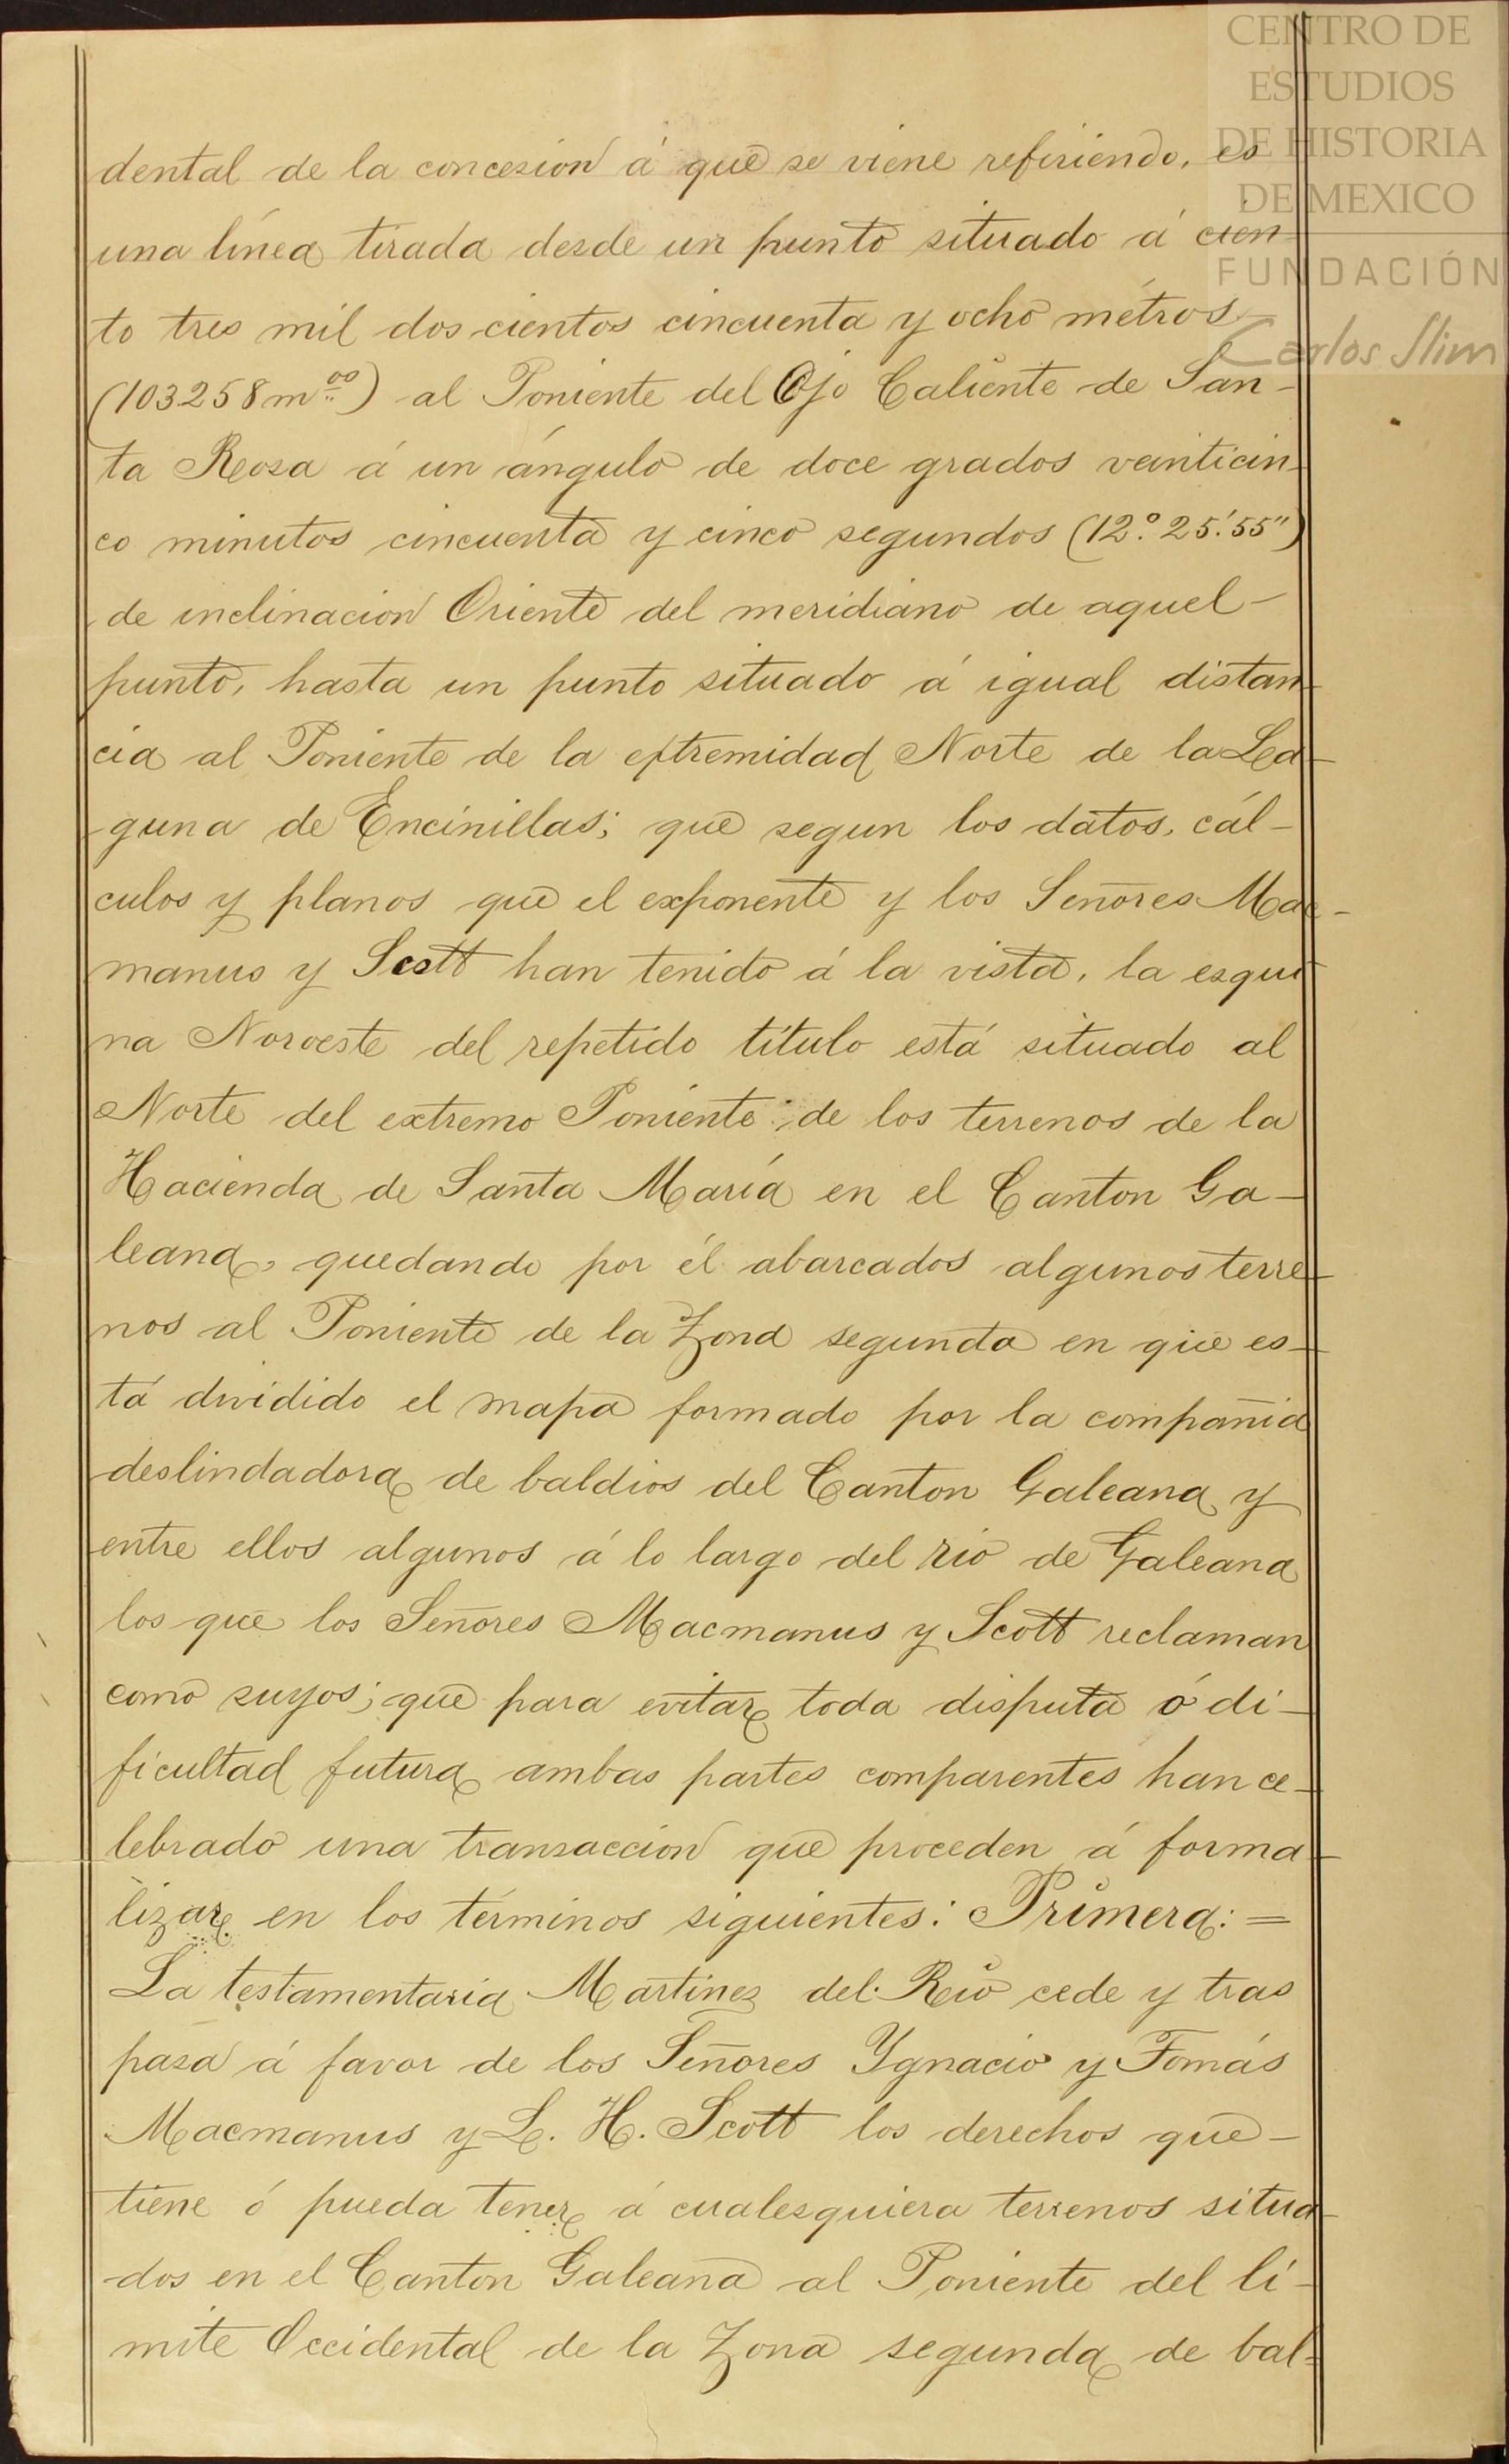 CENTRO DE
ESTUDIOS
DE HISTORIA
DE MEXICO
FUNDACIÓN
Carlos Slim
dental de la concesion á que se viene refiriendo, es
una línea tirada desde un punto situado á cien-
to tres mil dos cientos cincuenta y ocho métros
(103258 m⁰⁰) al Poniente del Ojo Caliente de San-
ta Rosa á un ángulo de doce grados veinticin-
co minutos cincuenta y cinco segundos (12.° 25.' 55")
de inclinacion Oriente del meridiano de aquel-
punto, hasta un punto situado á igual distan-
cia al Poniente de la extremidad Norte de la La-
guna de Encinillas; que segun los datos, cál-
culos y planos que el exponente y los Señores Mac-
manus y Scott han tenido á la vista, la esqui-
na Noroeste del repetido título está situado al
Norte del extremo Poniente de los terrenos de la
Hacienda de Santa María en el Canton Ga-
leana, quedando por él abarcados algunos terre-
nos al Poniente de la Zona segunda en que es-
tá dividido el mapa formado por la compañia
deslindadora de baldios del Canton Galeana y
entre ellos algunos á lo largo del rio de Galeana
los que los Señores Macmanus y Scott reclaman
como suyos; que para evitar toda disputa ó di-
ficultad futura ambas partes comparentes han ce-
lebrado una transaccion que proceden á forma-
lizar en los términos siguientes: Primera: =
La testamentaria Martinez del Rio cede y tras
pasa á favor de los Señores Ygnacio y Tomás
Macmanus y L. H. Scott los derechos que-
tiene ó pueda tener á cualesquiera terrenos situa-
dos en el Canton Galeana al Poniente del lí-
mite Occidental de la Zona segunda de bal-